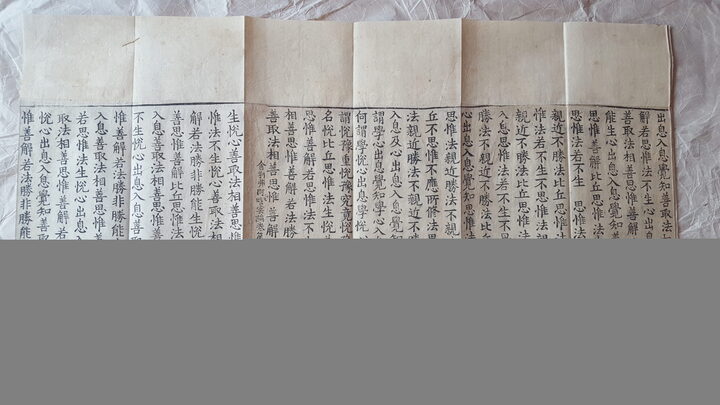 出息入息覺知善取法
解若思惟法不生心出息
善取法相善思惟善解
能生心出息入息覺知善
思惟善解比丘思惟法
思惟法若不生 思惟
親近不勝法比丘思惟法
惟法若不生不思惟法
親近不勝法比丘思惟法
入息思惟法若不生不
勝法不親近不勝法比丘
心出息入息覺知善
思惟法親近勝法不親
丘不思惟不應所修法
法親近勝法不親近不
入息及心出息覺知
謂學心出息覺知學心入
何謂學悅心出息學悅
謂悅豫重悅豫究竟悅
名悅比丘思惟法生悅
思惟善解若思惟法不
相善思惟善解若法勝
善取法相善思惟善解
舍利弗阿毗曇論卷第
生悅心善取法相善思惟
惟法不生悅心善取法相
解若法勝非勝能生悅
善思惟善解比丘思惟法
入息善取法相善思惟
不生悅心出息入息善取
惟善解若法勝非勝能
入息善取法相善思惟
若思惟法生悅心出息
取法相善思惟善解
悅心出息入息覺知善
惟善解若法勝非勝能